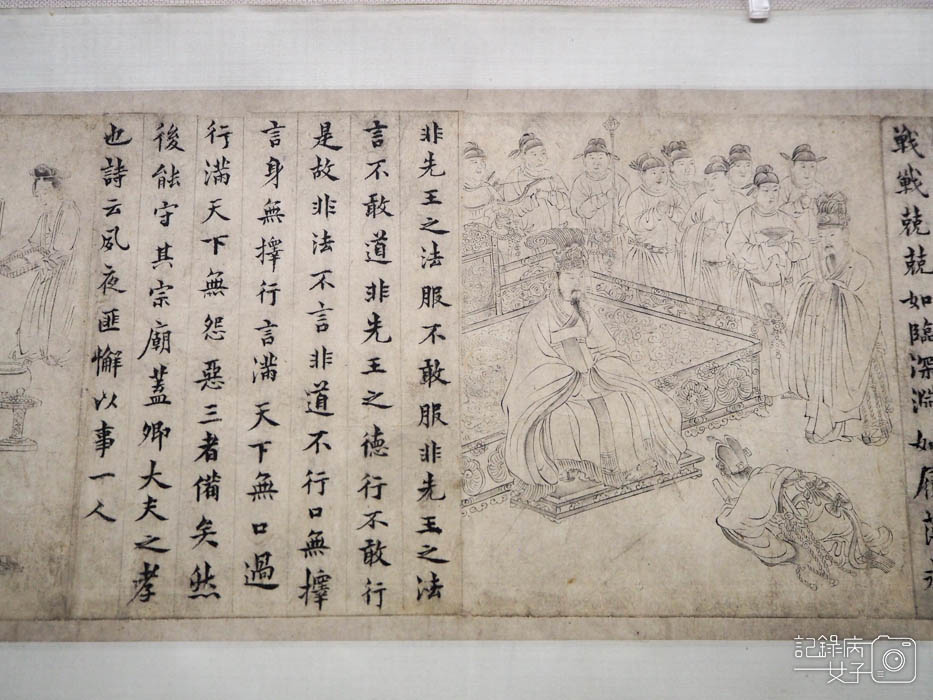 戰戰兢兢如臨深淵如履薄冰
非先王之法服不敢服非先王之法
言不敢道非先王之德行不敢行
是故非法不言非道不行口無擇
言身無擇行言滿天下無口過
行滿天下無怨惡三者備矣然
後能守其宗廟蓋卿大夫之孝
也詩云夙夜匪懈以事一人
記錄病女子